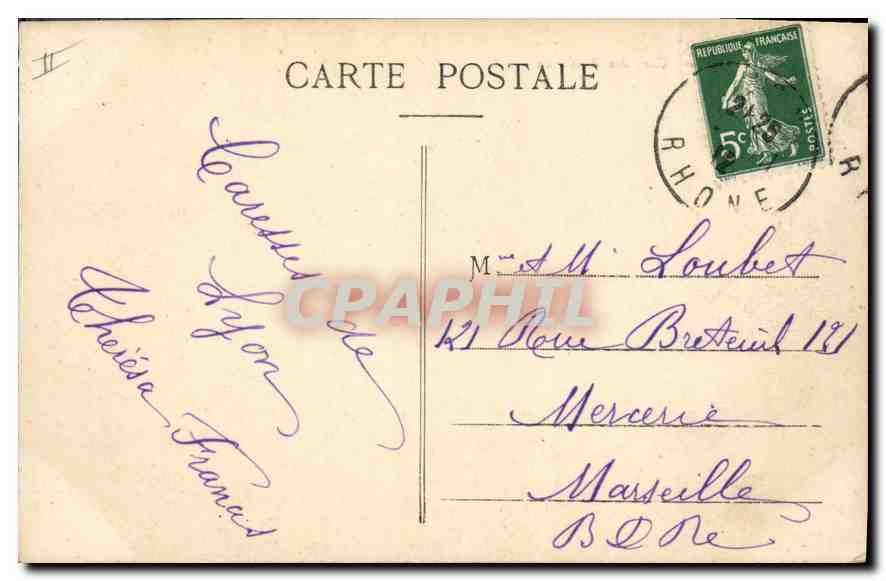 II
CARTE POSTALE
REPUBLIQUE FRANÇAISE
5c
POSTES
RHONE
Caresses de
Lyon
Theresa Francis
Mme et Mr Loubet
121 Rue Breteuil 121
Mercerie
Marseille
B D Re
CPAPHIL